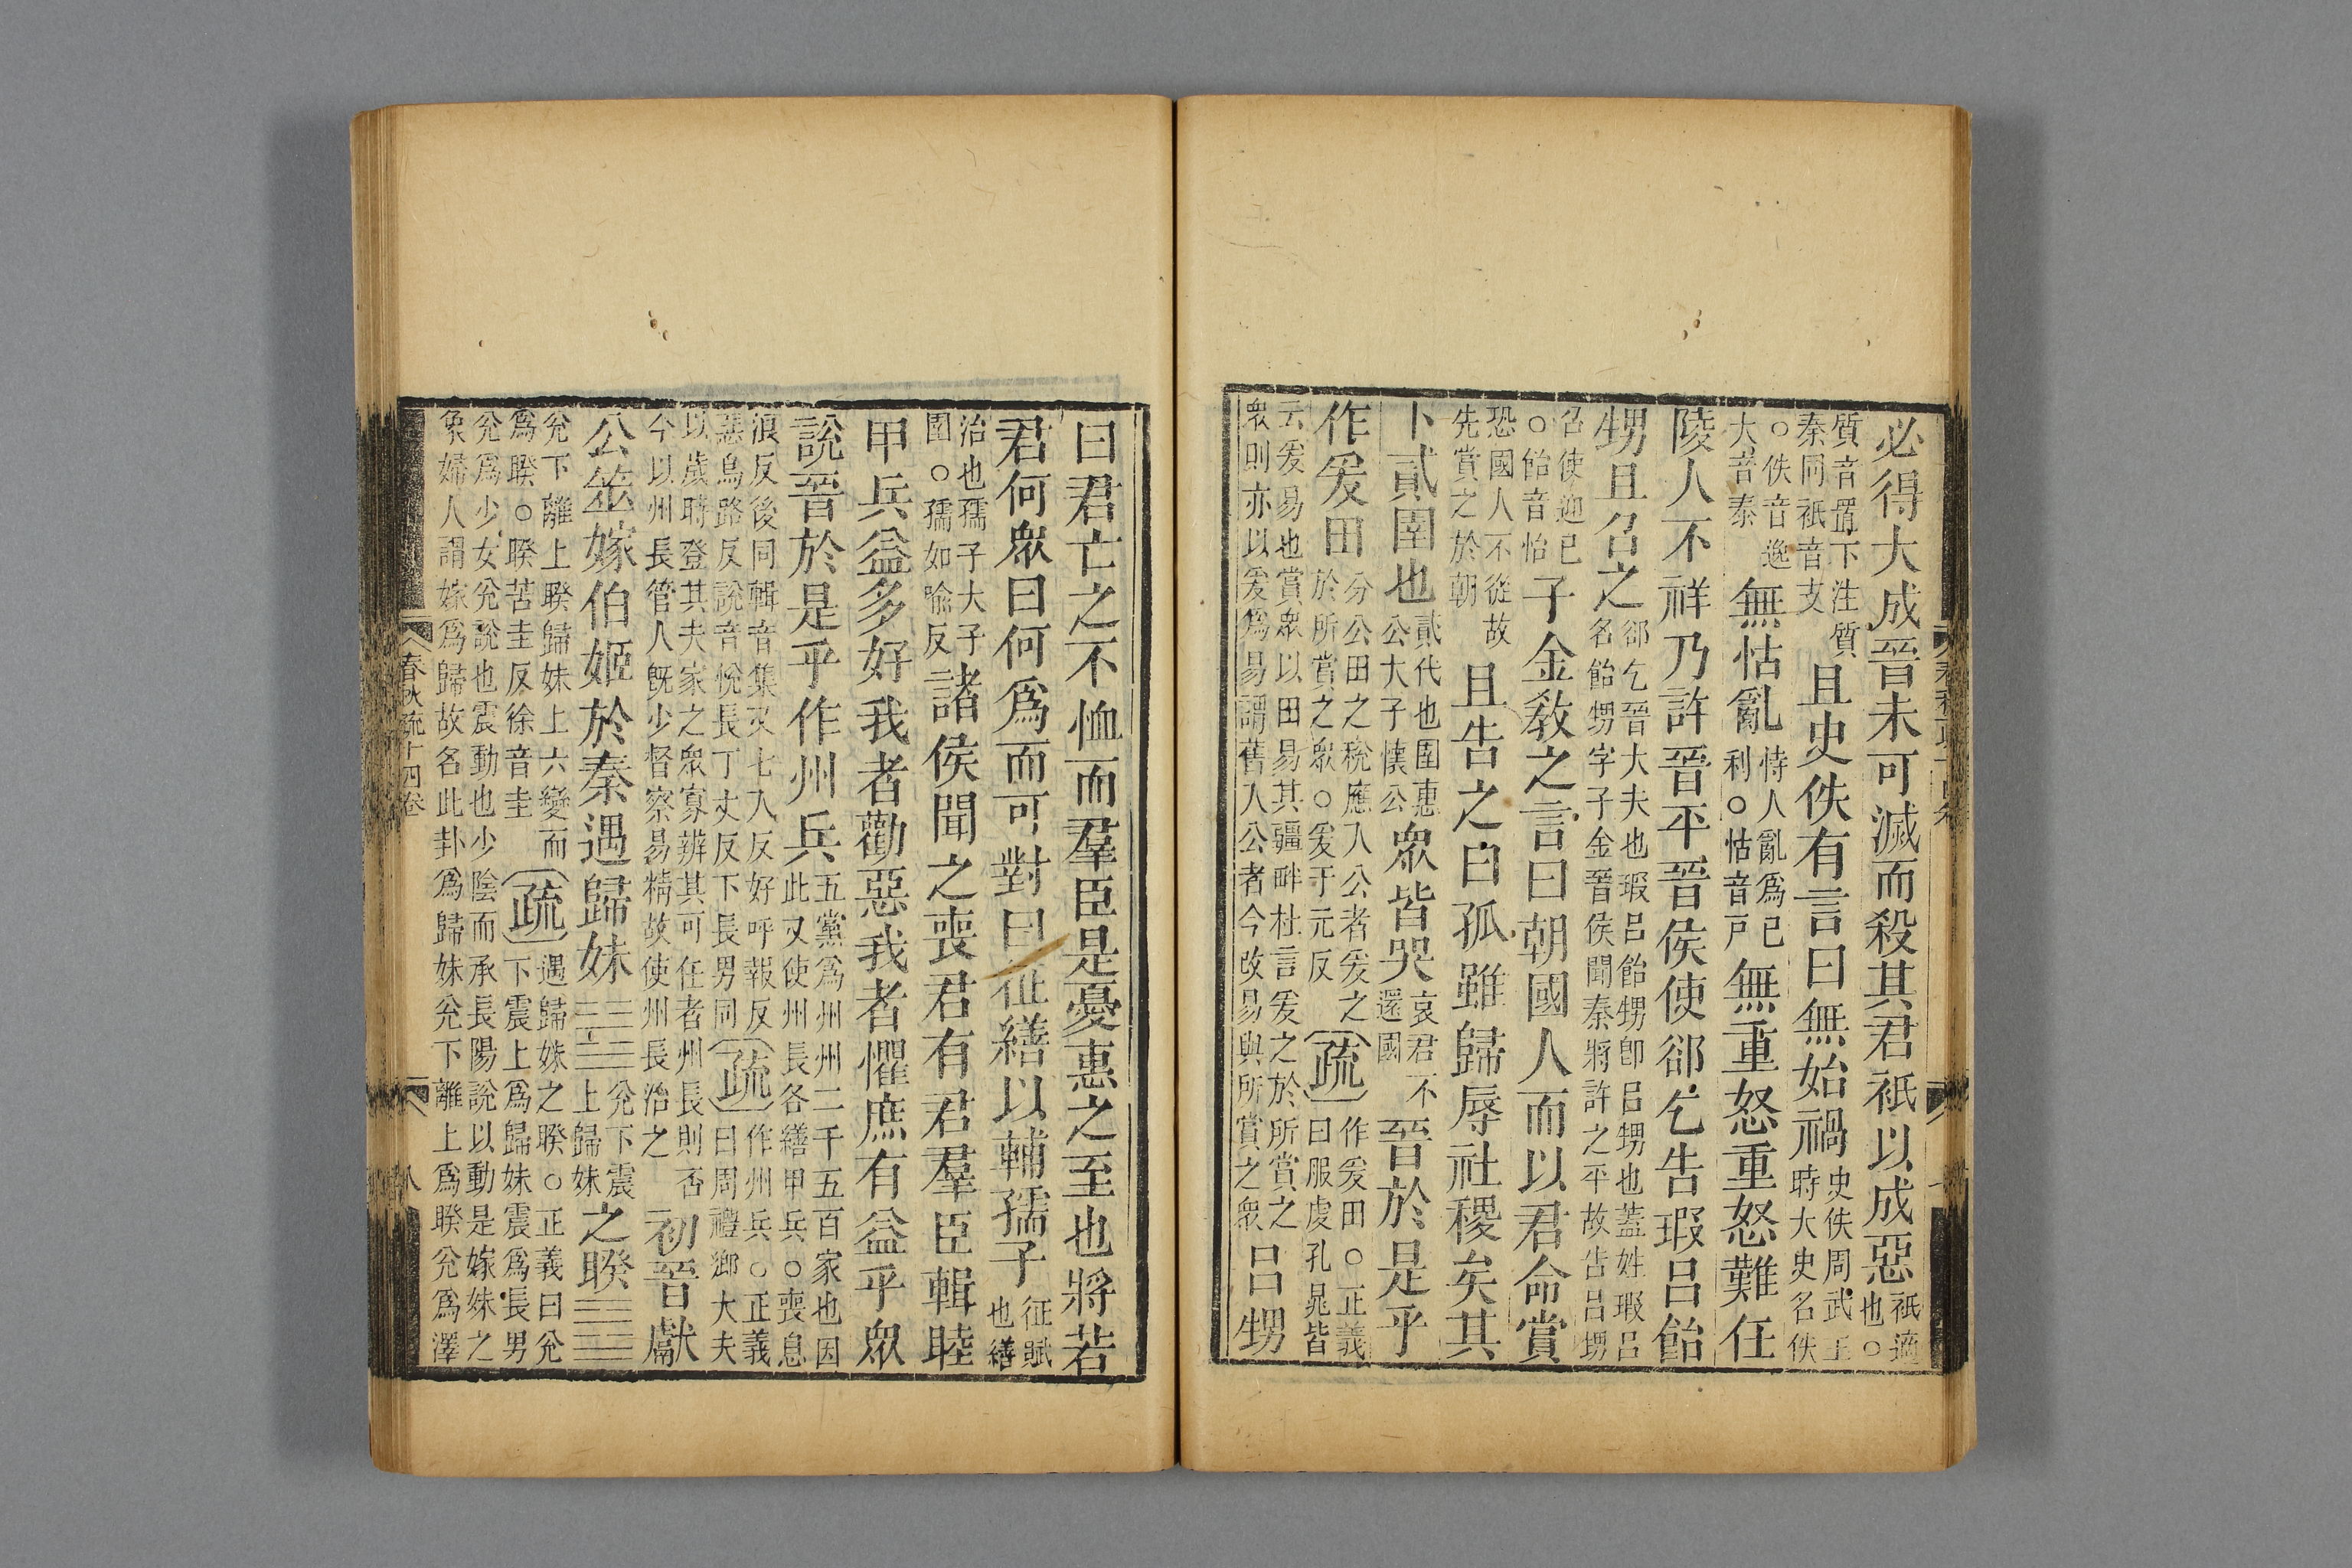 必得大成晉未可滅而殺其君衹以成惡
衹適
也○
質音置下注質
秦同衹音支
且史佚有言曰無始禍
史佚周武王
時大史名佚
○佚音逸
大音泰
無怙亂
恃人亂爲已
利○怙音戸
無重怒重怒難任
陵人不祥乃許晉平晉侯使郤乞告瑕呂飴
甥且召之
郤乞晉大夫也瑕呂飴甥卽呂甥也蓋姓瑕呂
名飴甥字子金晉侯聞秦將許之平故告呂甥
召使迎已
○飴音怡
子金敎之言曰朝國人而以君命賞
恐國人不從故
先賞之於朝
且告之曰孤雖歸辱社稷矣其
卜貳圉也
貳代也圉惠
公大子懷公
衆皆哭
哀君不
還國
晉於是乎
作爰田
分公田之稅應入公者爰之
於所賞之衆○爰于元反
疏
作爰田○正義
曰服虔孔晁皆
云爰易也賞衆以田易其疆畔杜言爰之於所賞之
衆則亦以爰爲易謂舊入公者今改易與所賞之衆
呂甥
曰君亡之不恤而羣臣是憂惠之至也將若
君何衆曰何爲而可對曰征繕以輔孺子
征賦
也繕
治也孺子大子
圉○孺如喻反
諸侯聞之喪君有君羣臣輯睦
甲兵益多好我者勸惡我者懼庶有益乎衆
說晉於是乎作州兵
五黨爲州州二千五百家也因
此又使州長各繕甲兵○喪息
浪反後同輯音集又七入反好呼報反
惡烏路反說音悅長丁丈反下長男同
疏
作州兵○正義
曰周禮鄉大夫
以歲時登其夫家之衆寡辨其可任者州長則否
今以州長管人旣少督察易精故使州長治之
初晉獻
公筮嫁伯姬於秦遇歸妹
䷵兌下震
上歸妹
之睽䷥
兌下離上睽歸妹上六變而
爲睽○睽苦圭反徐音圭
疏
遇歸妹之睽○正義曰兌
下震上爲歸妹震爲長男
兌爲少女兌說也震動也少陰而承長陽說以動是嫁妹之
象婦人謂嫁爲歸故名此卦爲歸妹兌下離上爲睽兌爲澤
春秋疏十四卷
八